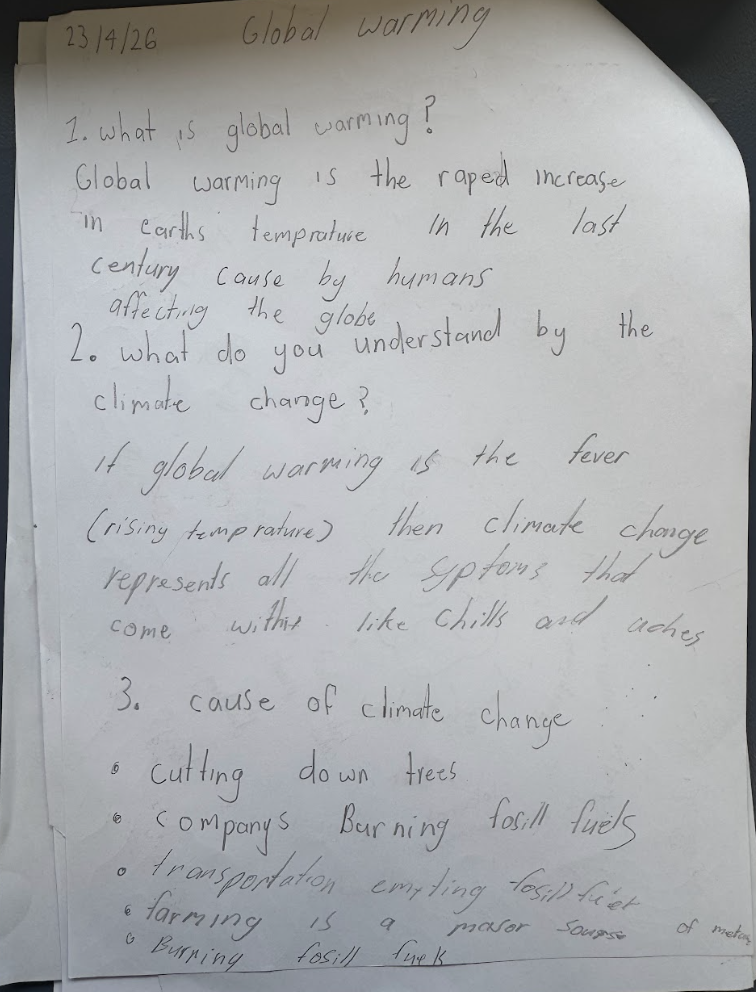 23/4/26 Global warming
1. what is global warming?
Global warming is the raped increase
in earths temprature in the last
century cause by humans
affecting the globe
2. what do you understand by the
climate change?
if global warming is the fever
(rising temprature) then climate change
represents all the syptoms that
come withit like chills and aches
3. cause of climate change
• cutting down trees
• companys Burning fosill fuels
• transportation emyting fosill
• farming is a major of
• Burning fosill fuels